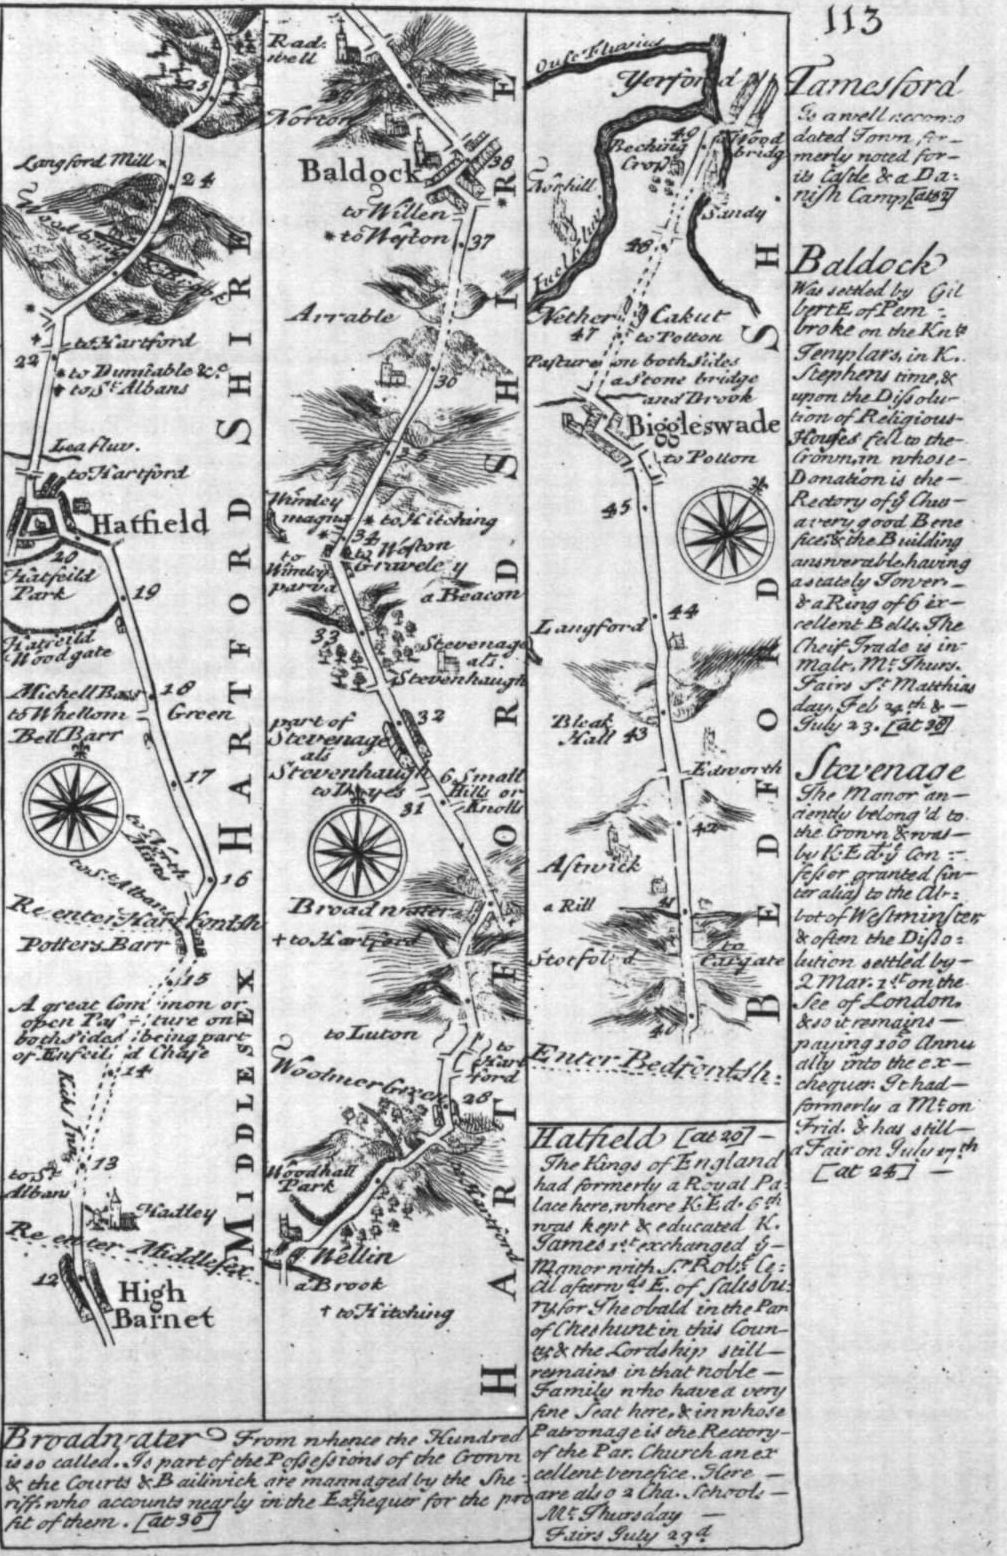 113
25
Langford Mill
24
Woolmer
22
to Hartford
to Dunstable &c.
to St. Albans
Lea fluv.
to Hartford
Hatfield
20
Hatfeild
Park
19
Hatfeild
Woodgate
18
Michell Barr
Green
to Whellom
Bell Barr
17
to North
Mims
to St. Albans
16
Re enter Hartfordsh
Potters Barr
15
A great Com mon or
open Pas ture on
both sides being part
of Enfeil d Chase
14
Kicks Inn
13
to St.
Albans
Hadley
Re enter Middlesex
12
High
Barnet
HARTFORDSHIRE
MIDDLESEX
Rad
well
Norton
Baldock
38
to Willen
to Weston
37
Arrable
36
35
Wimley
magna
to Hitching
34
to Weston
Graveley
to
Wimley
parva
a Beacon
33
Stevenage
als.
Stevenhaugh
32
part of
Stevenage
als
Stevenhaugh
6 Small
Hills or
Knolls
31
Broadwater
to Hartford
to Luton
to
Hart
ford
Woolmer Green
28
Woodhall
Park
to Hartford
Wellin
a Brook
to Hitching
HARTFORDSHIRE
Ouse Fluvius
Yerford
49
Wood
bridg
Beching
Crof
Norhill
Sandy
48
Nether
Cakut
47
to Potton
Pastures on both Sides
a Stone bridge
and Brook
Biggleswade
to Potton
45
44
Langford
Bleak
Hall
43
Edworth
42
Astwick
a Rill
41
Stotfol d
to
Eargate
40
Enter Bedfordsh:
BEDFORDSH
Tamesford
Is a well accomo
dated Town for—
merly noted for—
its Castle & a Da:
nish Camp [at 52]
Baldock
Was settled by Gil
bert E. of Pem -
broke on the Knts
Templars, in K.
Stephens time, &
upon the Dissolu
tion of Religious
Houses fell to the
Crown, in whose
Donation is the —
Rectory of ye Chur
a very good Bene
fice & the Building
answerable, having
a stately Tower —
& a Ring of 6 ex—
cellent Bells. The
Cheif Trade is in
Malt, Mt. Thurs.
Fairs St. Matthias
day, Feb 24th & —
July 23. [at 38]
Stevenage
The Manor an—
ciently belong'd to
the Crown & was—
by K. Ed ye Con -
fessor granted (in
ter alia) to the Ab:
bot of Westminster,
& often the Disso:
lution settled by—
2 Mar. 1st. on the
See of London,
& so it remains —
paying 100 Annu
ally into the ex—
chequer. It had—
formerly a Mt. on
Frid. & has still—
a Fair on July 17th
[at 24] —
Hatfield [at 20] —
The Kings of England
had formerly a Royal Pa
lace here, where K. Ed. 6th
was kept & educated K.
James 1st. exchanged ye—
Manor with Sr. Robt. Ce:
cil afterwds E. of Salisbu:
ry, for Theobald in the Par
of Cheshunt in this Coun—
ty, & the Lordship still—
remains in that noble —
Family who have a very
fine Seat here, & in whose
Patronage is the Rectory—
of the Par. Church an ex
cellent benefice. Here —
are also 2 Cha. Schools —
Mt. Thursday —
Fairs July 23d
Broadwater From whence the Hundred
is so called. Is part of the Possessions of the Crown
& the Courts & Bailiwick are mannaged by the She -
riff, who accounts nearly in the Exchequer for the pro
fit of them. [at 30]